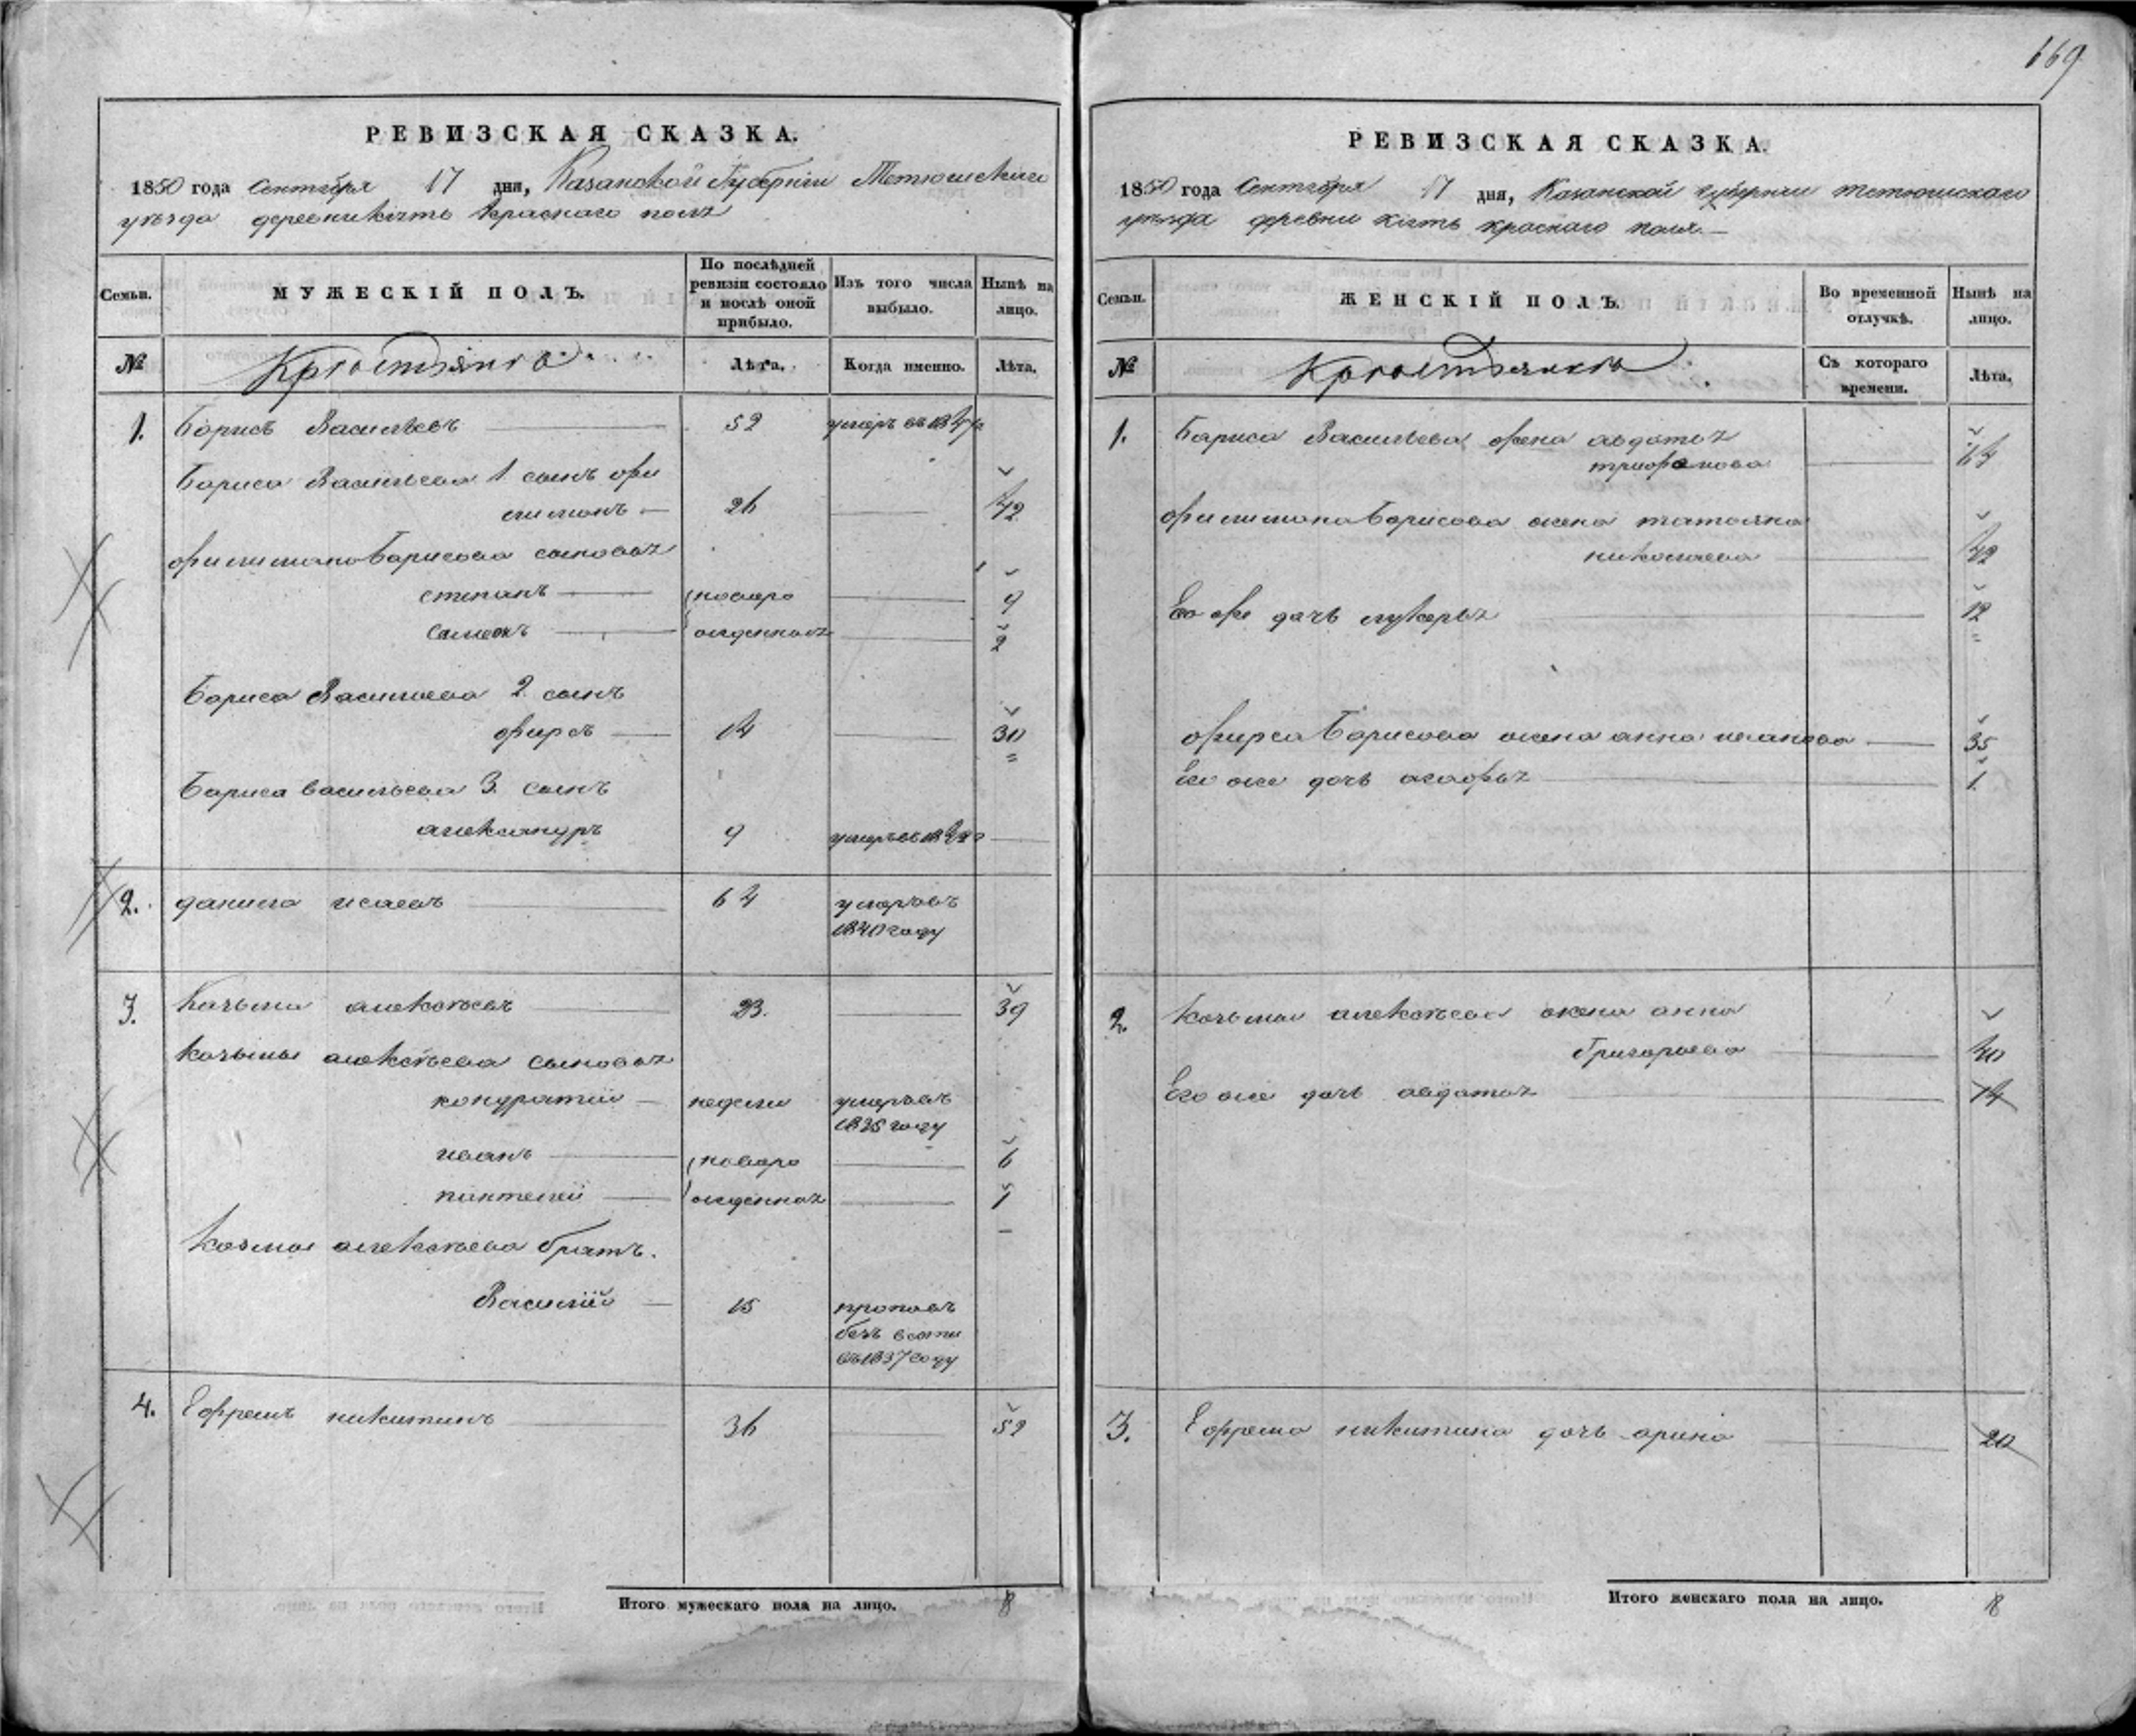 669
РЕВИЗСКАЯ СКАЗКА.
1850 года Сентября 17 дня, Казанской Губернiи Тетюшскаго
уѣзда деревни Кiять Краснаго поля
Семьи.
МУЖЕСКІЙ ПОЛЪ.
По послѣдней ревизіи состояло и послѣ оной прибыло.
Изъ того числа выбыло.
Нынѣ на лицо.
№
Крестьяне
Лѣта.
Когда именно.
Лѣта.
1. Борисъ Васильевъ 52 умеръ въ
Бориса Васильева 1 сынъ фи
лимонъ 26 42
филимона Борисова сыновья
степанъ новоро 9
Самеонъ жденныя 2
Бориса Васильева 2 сынъ
фирсъ 14 30
Бориса васильева 3. сынъ
александръ 9 умеръ въ
2. данила исаевъ 64 умеръ въ
1840 году
3. Козьма алексѣевъ 23. 39
Козьмы алексѣева сыновья
кондратiй недели умеръ въ
1835 году
иванъ новоро 6
пантелей жденныя 1
Козмы алексѣева братъ.
Василiй 15 пропавъ
безъ вѣсти
въ 1837 году
4. Ефремъ никитинъ 36 52
Итого мужескаго пола на лицо. 8
РЕВИЗСКАЯ СКАЗКА.
1850 года Сентября 17 дня, Казанской губернiи тетюшскаго
уѣзда деревни кiять краснаго поля.
Семьи.
ЖЕНСКІЙ ПОЛЪ.
Во временной отлучкѣ.
Нынѣ на лицо.
№
Крестьянъ
Съ котораго времени.
Лѣта.
1. Бориса Васильева жена авдотья
трифонова 64
филимона Борисова жена татьяна
николаева 42
Его же дочь лукерья 12
фирса Борисова жена анна иванова 35
Его же дочь агафья 1
2. Козьмы алексѣева жена анна
Григорьева 40
Его же дочь авдотья 14
3. Ефрема никитина дочь арина 20
Итого женскаго пола на лицо. 8